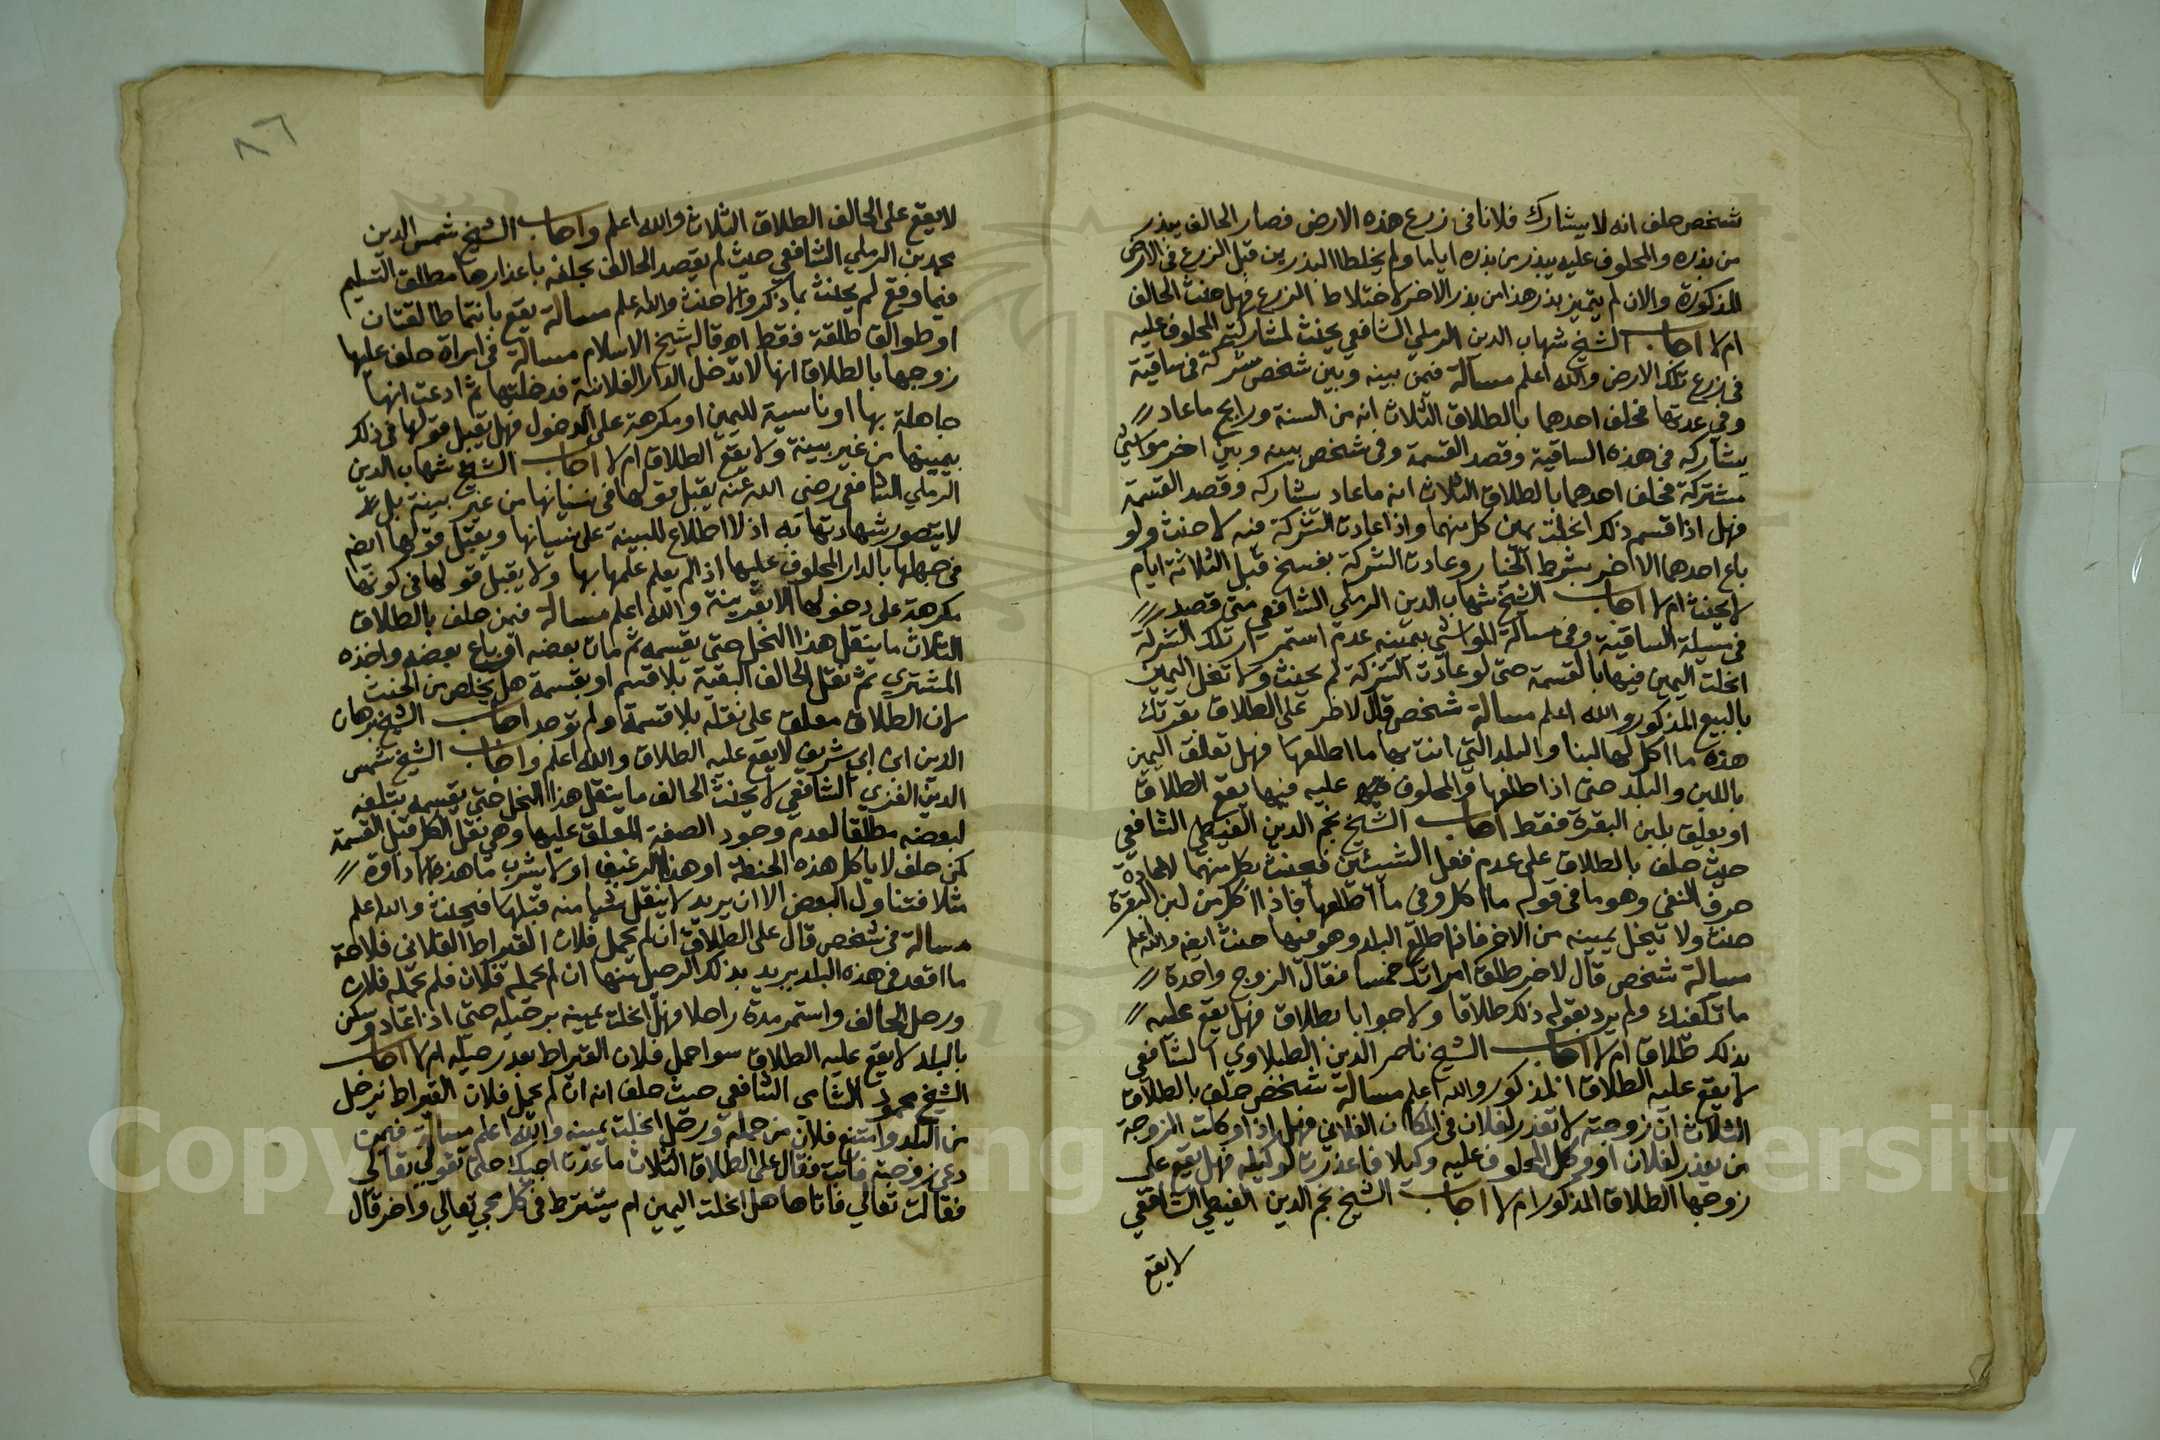 شخص حلف انه لا يشارك فلانا في زرع هذه الارض فصار الحالف يبذر
من بذره والمحلوف عليه يبذر من بذره اياما ولم يخلطا البذرين قبل الزرع في الارض
المذكورة والان لم يتميز بذر هذا من بذر الاخر لاختلاط الزرع فهل حنث الحالف
ام لا اجاب الشيخ شهاب الدين الرملي الشافعي يحنث لمشاركته المحلوف عليه
في زرع تلك الارض والله اعلم مسالة فيمن بينه وبين شخص شركة في ساقية
وفي عدتها فحلف احدهما بالطلاق الثلاث انه من السنة ورايح ما عاد
يشاركه في هذه الساقية وقصد القسمة وفي شخص بينه وبين اخر مواشي
مشتركة فحلف احدهما بالطلاق الثلاث انه ما عاد يشاركه وقصد القسمة
فهل اذا قسم ذلك انحلت يمين كل منهما واذا عادت الشركة فيه لا حنث ولو
باع احدهما الاخر بشرط الخيار وعادت الشركة بفسخ قبل الثلاثة ايام
لا يحنث ام لا اجاب الشيخ شهاب الدين الرملي الشافعي متى قصد
في مسيلة الساقية وفي مسالة المواشي بيمينه عدم استمرار تلك الشركة
انحلت اليمين فيها بالقسمة حتى لو عادت الشركة لم يحنث ولا تنحل اليمين
بالبيع المذكور والله اعلم مسالة شخص قال لاخر على الطلاق بقرتك
هذه ما اكل لها لبنا والبلد التي انت بها ما اطلعها فهل تعلق اليمين
باللبن والبلد حتى اذا طلعها والمحلوف عليه فيها يقع الطلاق
او يعلق بلبن البقرة فقط اجاب الشيخ نجم الدين الغيطي الشافعي
حيث حلف بالطلاق على عدم فعل الشيئين فيحنث بكل منهما لاعادة
حرف النفي وهو ما في قوله ما اكل وفي ما اطلعها فاذا اكل من لبن البقرة
حنث ولا تنحل يمينه من الاخر فاذا طلع البلد وهو فيها حنث ايضه والله اعلم
مسالة شخص قال لاخر طلق امراتك خمسا فقال الزوج واحدة
ما تكفيك ولم يرد بقوله ذلك طلاقا ولا جوابا بطلاق فهل يقع عليه
بذلك طلاق ام لا اجاب الشيخ ناصر الدين الطبلاوي الشافعي
لا يقع عليه الطلاق المذكور والله اعلم مسالة شخص حلف بالطلاق
الثلاث ان زوجته لا تعذر لفلان في المكان الفلاني فهل اذا وكلت الزوجة
من يعذر لفلان او وكل المحلوف عليه وكيلا فاعذرت لوكيله فهل يقع على
زوجها الطلاق المذكور ام لا اجاب الشيخ نجم الدين الغيطي الشافعي
لا يقع
٨٦
لا يقع على الحالف الطلاق الثلاث والله اعلم واجاب الشيخ شمس الدين
محمد بن الرملي الشافعي حيث لم يقصد الحالف بحلفه باعذارها مطلق التسليم
فيما وقع لم يحنث بما ذكر والا حنث والله اعلم مسالة يقع بانتما طالقتان
او طوالق طلقة فقط اه قاله شيخ الاسلام مسالة في امراة حلف عليها
زوجها بالطلاق انها لا تدخل الدار الفلانية فدخلتها ثم ادعت انها
جاهلة بها او ناسية لليمين او مكرهة على الدخول فهل تقبل قولها في ذلك
بيمينها من غير بينة ولا يقع الطلاق ام لا اجاب الشيخ شهاب الدين
الرملي الشافعي رضي الله عنه يقبل قولها في نسيانها من غير بينة بل
لا يتصور شهادتها به اذ لا اطلاع للبينة على نسيانها ويقبل قولها ايضه
في جهلها بالدار المحلوف عليها اذا لم يعلم علمها بها ولا يقبل قولها في كونها
مكرهة على دخولها الا بقرينة والله اعلم مسالة فيمن حلف بالطلاق
الثلاث ما ينقل هذا النخل حتى يقسمه ثم مات بعضه او باع بعضه واخذه
المشتري ثم نقل الحالف البقية بلا قسم او بقسمة هل يخلص من الحنث
لان الطلاق معلق على نقله بلا قسمة ولم توجد اجاب الشيخ برهان
الدين ابن ابي شريف لا يقع عليه الطلاق والله اعلم واجاب الشيخ شمس
الدين الغزي الشافعي لا يحنث الحالف ما ينقل هذا النخل حتى يقسمه بنقله
لبعضه مطلقا لعدم وجود الصفة المعلق عليها وهي نقل الكل قبل القسمة
كمن حلف لا ياكل هذه الحنطة او هذا الرغيف او لا يشرب ما هذه الاداوة
مثلا فتناول البعض الا ان يريد لا ينقل شيا منه قبلها فيحنث والله اعلم
مسالة في شخص قال على الطلاق ان لم يحمل فلان القيراط الفلاني فلاحة
ما اقعد في هذه البلد يريد بذلك الرحيل منها ان لم يحمله فلان فلم يحمله فلان
ورحل الحالف واستمر مدة راحلا فهل انحلت يمينه برحيله حتى اذا عاد وسكن
بالبلد لا يقع عليه الطلاق سوا حمل فلان القيراط بعد رحيله ام لا اجاب
الشيخ محمود الشامي الشافعي حيث حلف انه ان لم يحمل فلان القيراط يرحل
من البلد وامتنع فلان من حمله ورحل انحلت يمينه والله اعلم مسالة فيمن
دعى زوجته فابت فقال على الطلاق الثلاث ما عدت اجيك حتى تقولي تعالى
فقالت تعالي فاتاها هل انحلت اليمين ام يشترط في كل مجي تعالي واخر قال